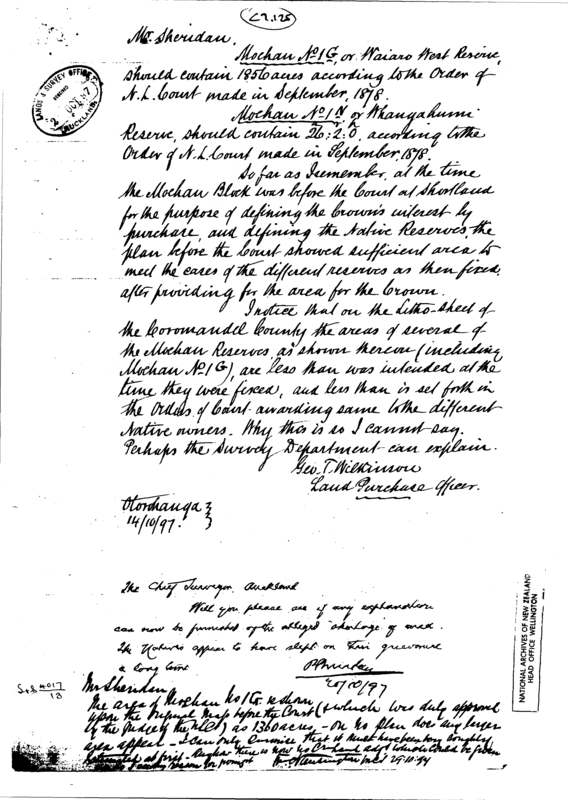 C7.125
Mr. Sheridan,
Moehau No 1G, or Waiaro West Reserve,
should contain 1856 acres according to the Order of
N.L. Court made in September, 1878.
Moehau No 1N or Whangahumi
Reserve, should contain 26:2:0, according to the
Order of N.L. Court made in September, 1878.
So far as I remember, at the time
the Moehau Block was before the Court at Shortland
for the purpose of defining the Crown's interest by
purchase, and defining the Native Reserves, the
plan before the Court showed sufficient area to
meet the cases of the different reserves as then fixed,
after providing for the area for the Crown.
I notice that on the Litho-sheet of
the Coromandel County the areas of several of
the Moehau Reserves as shown thereon (including
Moehau No 1G), are less than was intended at the
time they were fixed, and less than is set forth in
the Orders of Court awarding same to the different
Native owners. Why this is so I cannot say.
Perhaps the Survey Department can explain.
Geo. T. Wilkinson
Land Purchase Officer.
Otorohanga
14/10/97.
LANDS & SURVEY OFFICE
AUCKLAND
The Chief Surveyor Auckland
Will you please see if any explanation
can now be furnished of the alleged shortage of area.
The Natives appear to have slept on their grievance
a long time
P Sheridan
20/10/97
S&S 4017
13
Mr Sheridan
The area of Moehau No 1G is shown
upon the Original Map before the Court (& which was duly approved
by the Judge of the N.L.C) as 1360 acres - On no plan does any larger
area appear - I can only surmise that it must have been roughly
estimated at first - there is now no Crown land adj. which could be given
29.10.97
NATIONAL ARCHIVES OF NEW ZEALAND
HEAD OFFICE WELLINGTON